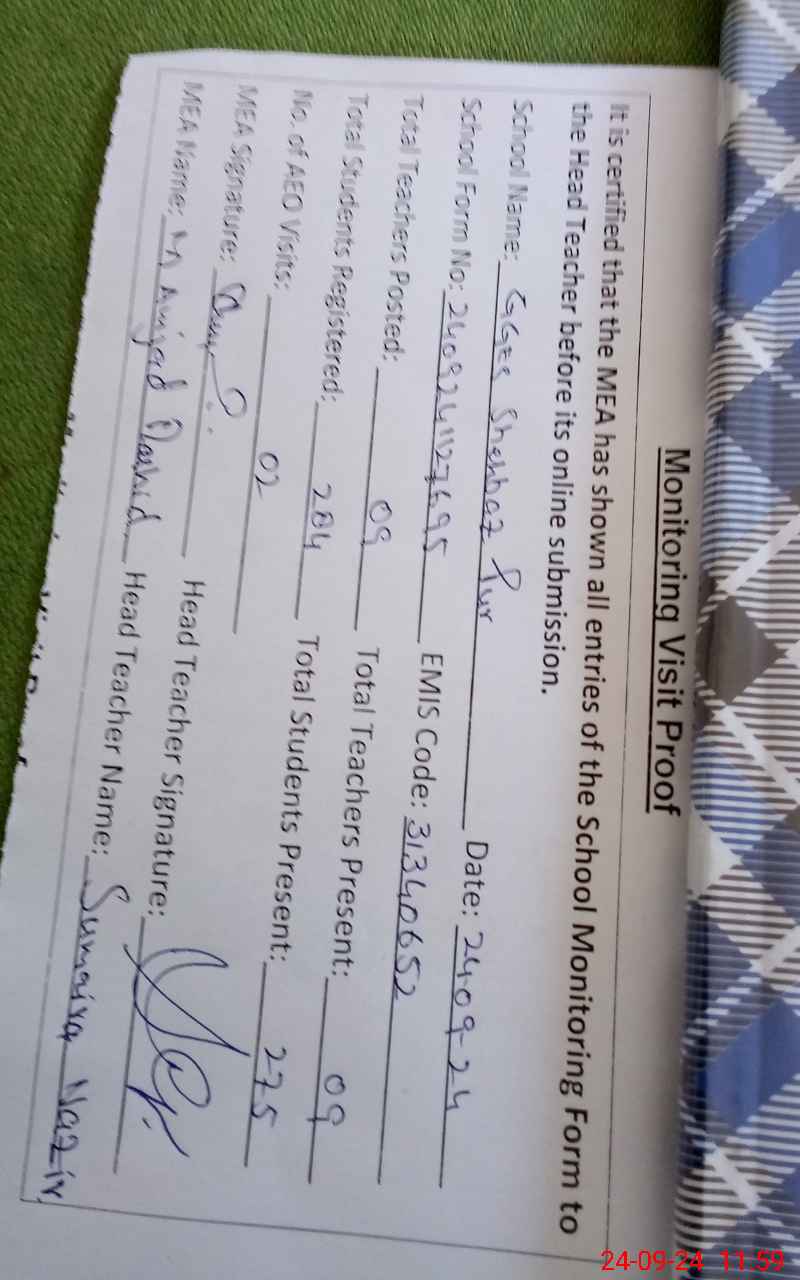 Monitoring Visit Proof
It is certified that the MEA has shown all entries of the School Monitoring Form to
the Head Teacher before its online submission.
School Name: GGES Shahbaz Pur Date: 24-09-24
School Form No: 2409241127695 EMIS Code: 31340652
Total Teachers Posted: 09 Total Teachers Present: 09
Total Students Registered: 284 Total Students Present: 275
No. of AEO Visits: 02
MEA Signature: Head Teacher Signature:
MEA Name: M Amjad Rashid Head Teacher Name: Sumaira Nazir
24-09-24 11:59